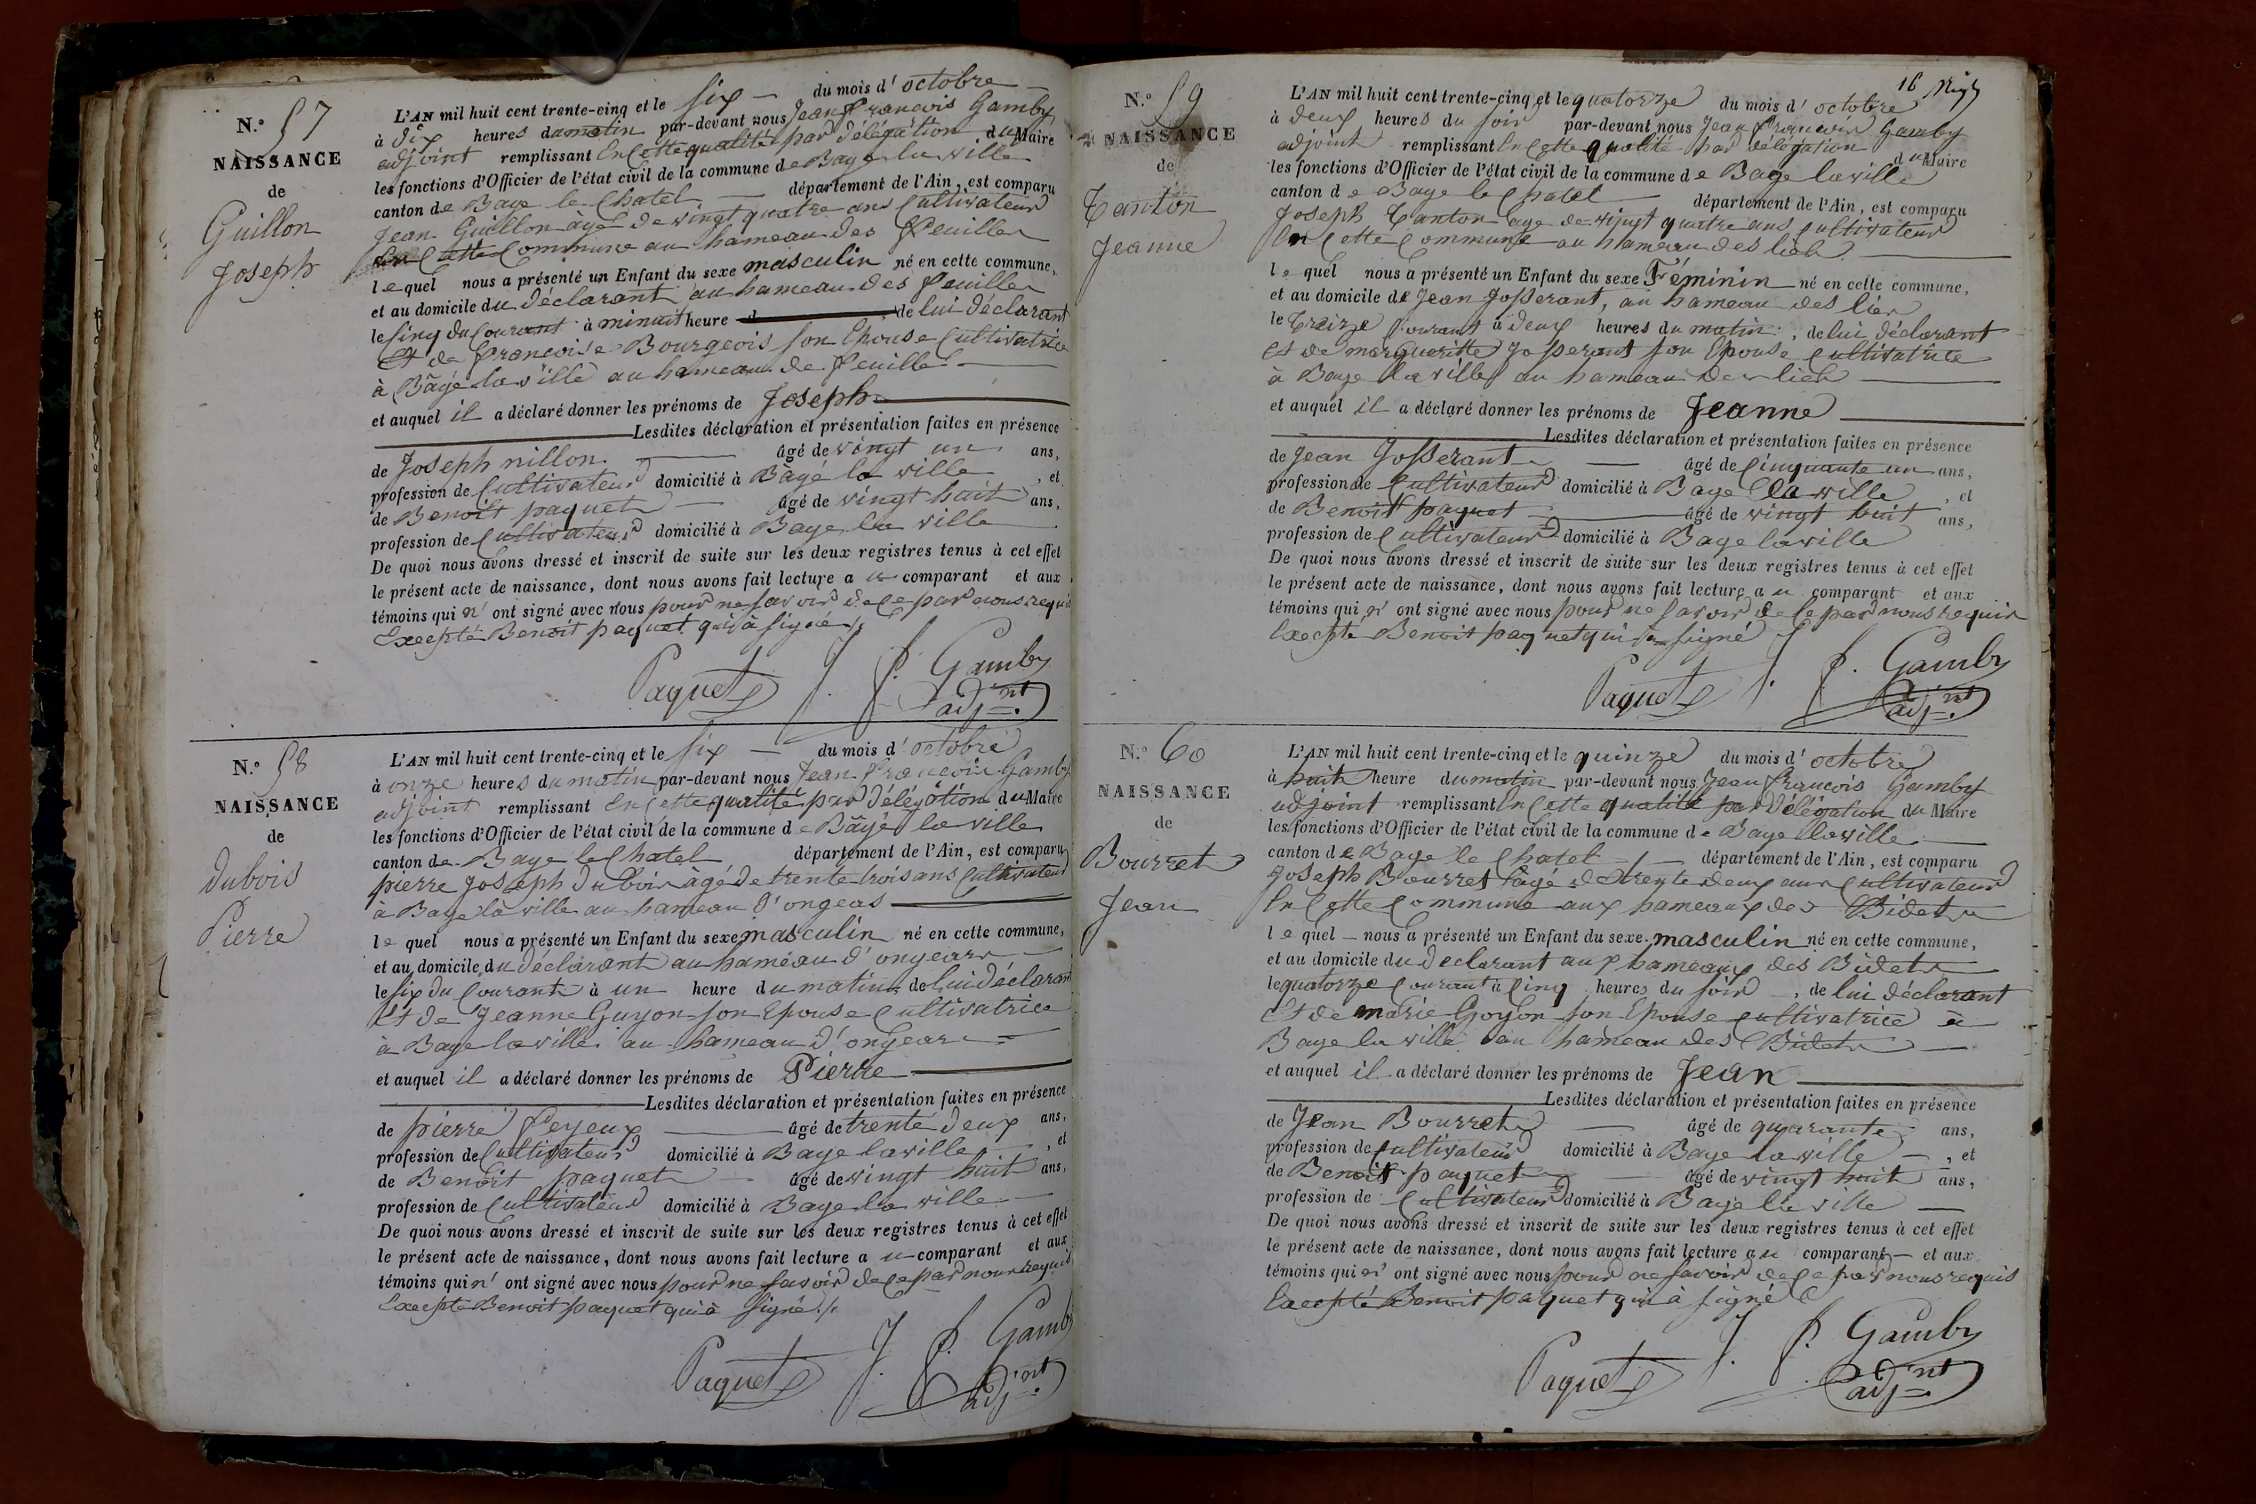 N.° 57
NAISSANCE
de
Guillon
Joseph
L'AN mil huit cent trente-cinq et le six du mois d'octobre
à dix heures du matin par-devant nous Jean François Gamby
adjoint remplissant En Cette qualité par délégation du Maire
les fonctions d'Officier de l'état civil de la commune de Bage la ville
canton de Bage le Chatel département de l'Ain, est comparu
Jean Guillon âgé de vingt quatre ans Cultivateur
En Cette Commune au hameau des feuilles
lequel nous a présenté un Enfant du sexe masculin né en cette commune,
et au domicile du déclarant au hameau des feuilles
le Cinq du Courant à minuit heure d de lui déclarant
Et de françoise Bourgeois son Epouse Cultivatrice
à Bâgé la ville au hameau de feuilles
et auquel il a déclaré donner les prénoms de Joseph
Lesdites déclaration et présentation faites en présence
de Joseph nillon âgé de vingt un ans,
profession de Cultivateur domicilié à Bâgé la ville, et
de Benoit paquet âgé de vingt huit ans,
profession de Cultivateur domicilié à Baye la ville
De quoi nous avons dressé et inscrit de suite sur les deux registres tenus à cet effet
le présent acte de naissance, dont nous avons fait lecture au comparant et aux
témoins qui n'ont signé avec nous pour ne savoir de Ce par nous requis
Excepté Benoit paquet qui à signé
Paquet J. f. Gamby
adj.nt
N.° 58
NAISSANCE
de
Dubois
Pierre
L'AN mil huit cent trente-cinq et le six du mois d'octobre
à onze heures du matin par-devant nous Jean françois Gamby
adjoint remplissant En Cette qualité par délégation du Maire
les fonctions d'Officier de l'état civil de la commune de Bâgé la ville
canton de Bage le Chatel département de l'Ain, est comparu
pierre Joseph Dubois âgé de trente trois ans Cultivateur
à Bage la ville au hameau d'ongeas
lequel nous a présenté un Enfant du sexe masculin né en cette commune,
et au domicile du déclarant au hameau d'ongears
le six du Courant à un heure du matin de lui déclarant
Et de Jeanne Guyon son Epouse Cultivatrice
à Bage la ville au hameau d'ongears
et auquel il a déclaré donner les prénoms de Pierre
Lesdites déclaration et présentation faites en présence
de pierre feyeux âgé de trente deux ans,
profession de Cultivateur domicilié à Bage la ville, et
de Benoit paquet âgé de vingt huit ans,
profession de Cultivateur domicilié à Bage la ville
De quoi nous avons dressé et inscrit de suite sur les deux registres tenus à cet effet
le présent acte de naissance, dont nous avons fait lecture au comparant et aux
témoins qui n'ont signé avec nous pour ne savoir de Ce par nous requis
Excepté Benoit paquet qui à signé
Paquet J. f. Gamby
adj.nt
16
N.° 59
NAISSANCE
de
Tanton
Jeanne
L'AN mil huit cent trente-cinq et le quatorze du mois d'octobre
à deux heures du soir par-devant nous Jean françois Gamby
adjoint remplissant En Cette qualité par délégation du Maire
les fonctions d'Officier de l'état civil de la commune de Bage la ville
canton de Bage le Chatel département de l'Ain, est comparu
Joseph Tanton âgé de vingt quatre ans Cultivateur
En Cette Commune au hameau des liéts
lequel nous a présenté un Enfant du sexe Féminin né en cette commune,
et au domicile de Jean Josserant, au hameau des liés
le treize Courant à deux heures du matin, de lui déclarant
Et de margueritte Josserant son Epouse Cultivatrice
à Bage la ville au hameau des liéts
et auquel il a déclaré donner les prénoms de Jeanne
Lesdites déclaration et présentation faites en présence
de Jean Josserant âgé de Cinquante un ans,
profession de Cultivateur domicilié à Bage la ville, et
de Benoit paquet âgé de vingt huit ans,
profession de Cultivateur domicilié à Bage la ville
De quoi nous avons dressé et inscrit de suite sur les deux registres tenus à cet effet
le présent acte de naissance, dont nous avons fait lecture au comparant et aux
témoins qui n'ont signé avec nous pour ne savoir de Ce par nous requis
Excepté Benoit paquet qui a signé
Paquet J. f. Gamby
adj.nt
N.° 60
NAISSANCE
de
Bourret
Jean
L'AN mil huit cent trente-cinq et le quinze du mois d'octobre
à huit heure du matin par-devant nous Jean françois Gamby
adjoint remplissant En Cette qualité par délégation du Maire
les fonctions d'Officier de l'état civil de la commune de Bage la ville
canton de Bage le Chatel département de l'Ain, est comparu
Joseph Bourret âgé de trente deux ans Cultivateur
En Cette Commune aux hameaux des Bidets
lequel nous a présenté un Enfant du sexe masculin né en cette commune,
et au domicile du declarant aux hameaux des Bidets
le quatorze Courant à Cinq heures du soir, de lui déclarant
Et de marie Goyon son Epouse Cultivatrice à
Bage la ville au hameau des Bidets
et auquel il a déclaré donner les prénoms de Jean
Lesdites déclaration et présentation faites en présence
de Jean Bourret âgé de quarante ans,
profession de Cultivateur domicilié à Bage la ville, et
de Benoit paquet âgé de vingt huit ans,
profession de Cultivateur domicilié à Bage la ville
De quoi nous avons dressé et inscrit de suite sur les deux registres tenus à cet effet
le présent acte de naissance, dont nous avons fait lecture au comparant et aux
témoins qui n'ont signé avec nous pour ne savoir de Ce par nous requis
Excepté Benoit paquet qui à signé
Paquet J. f. Gamby
adj.nt